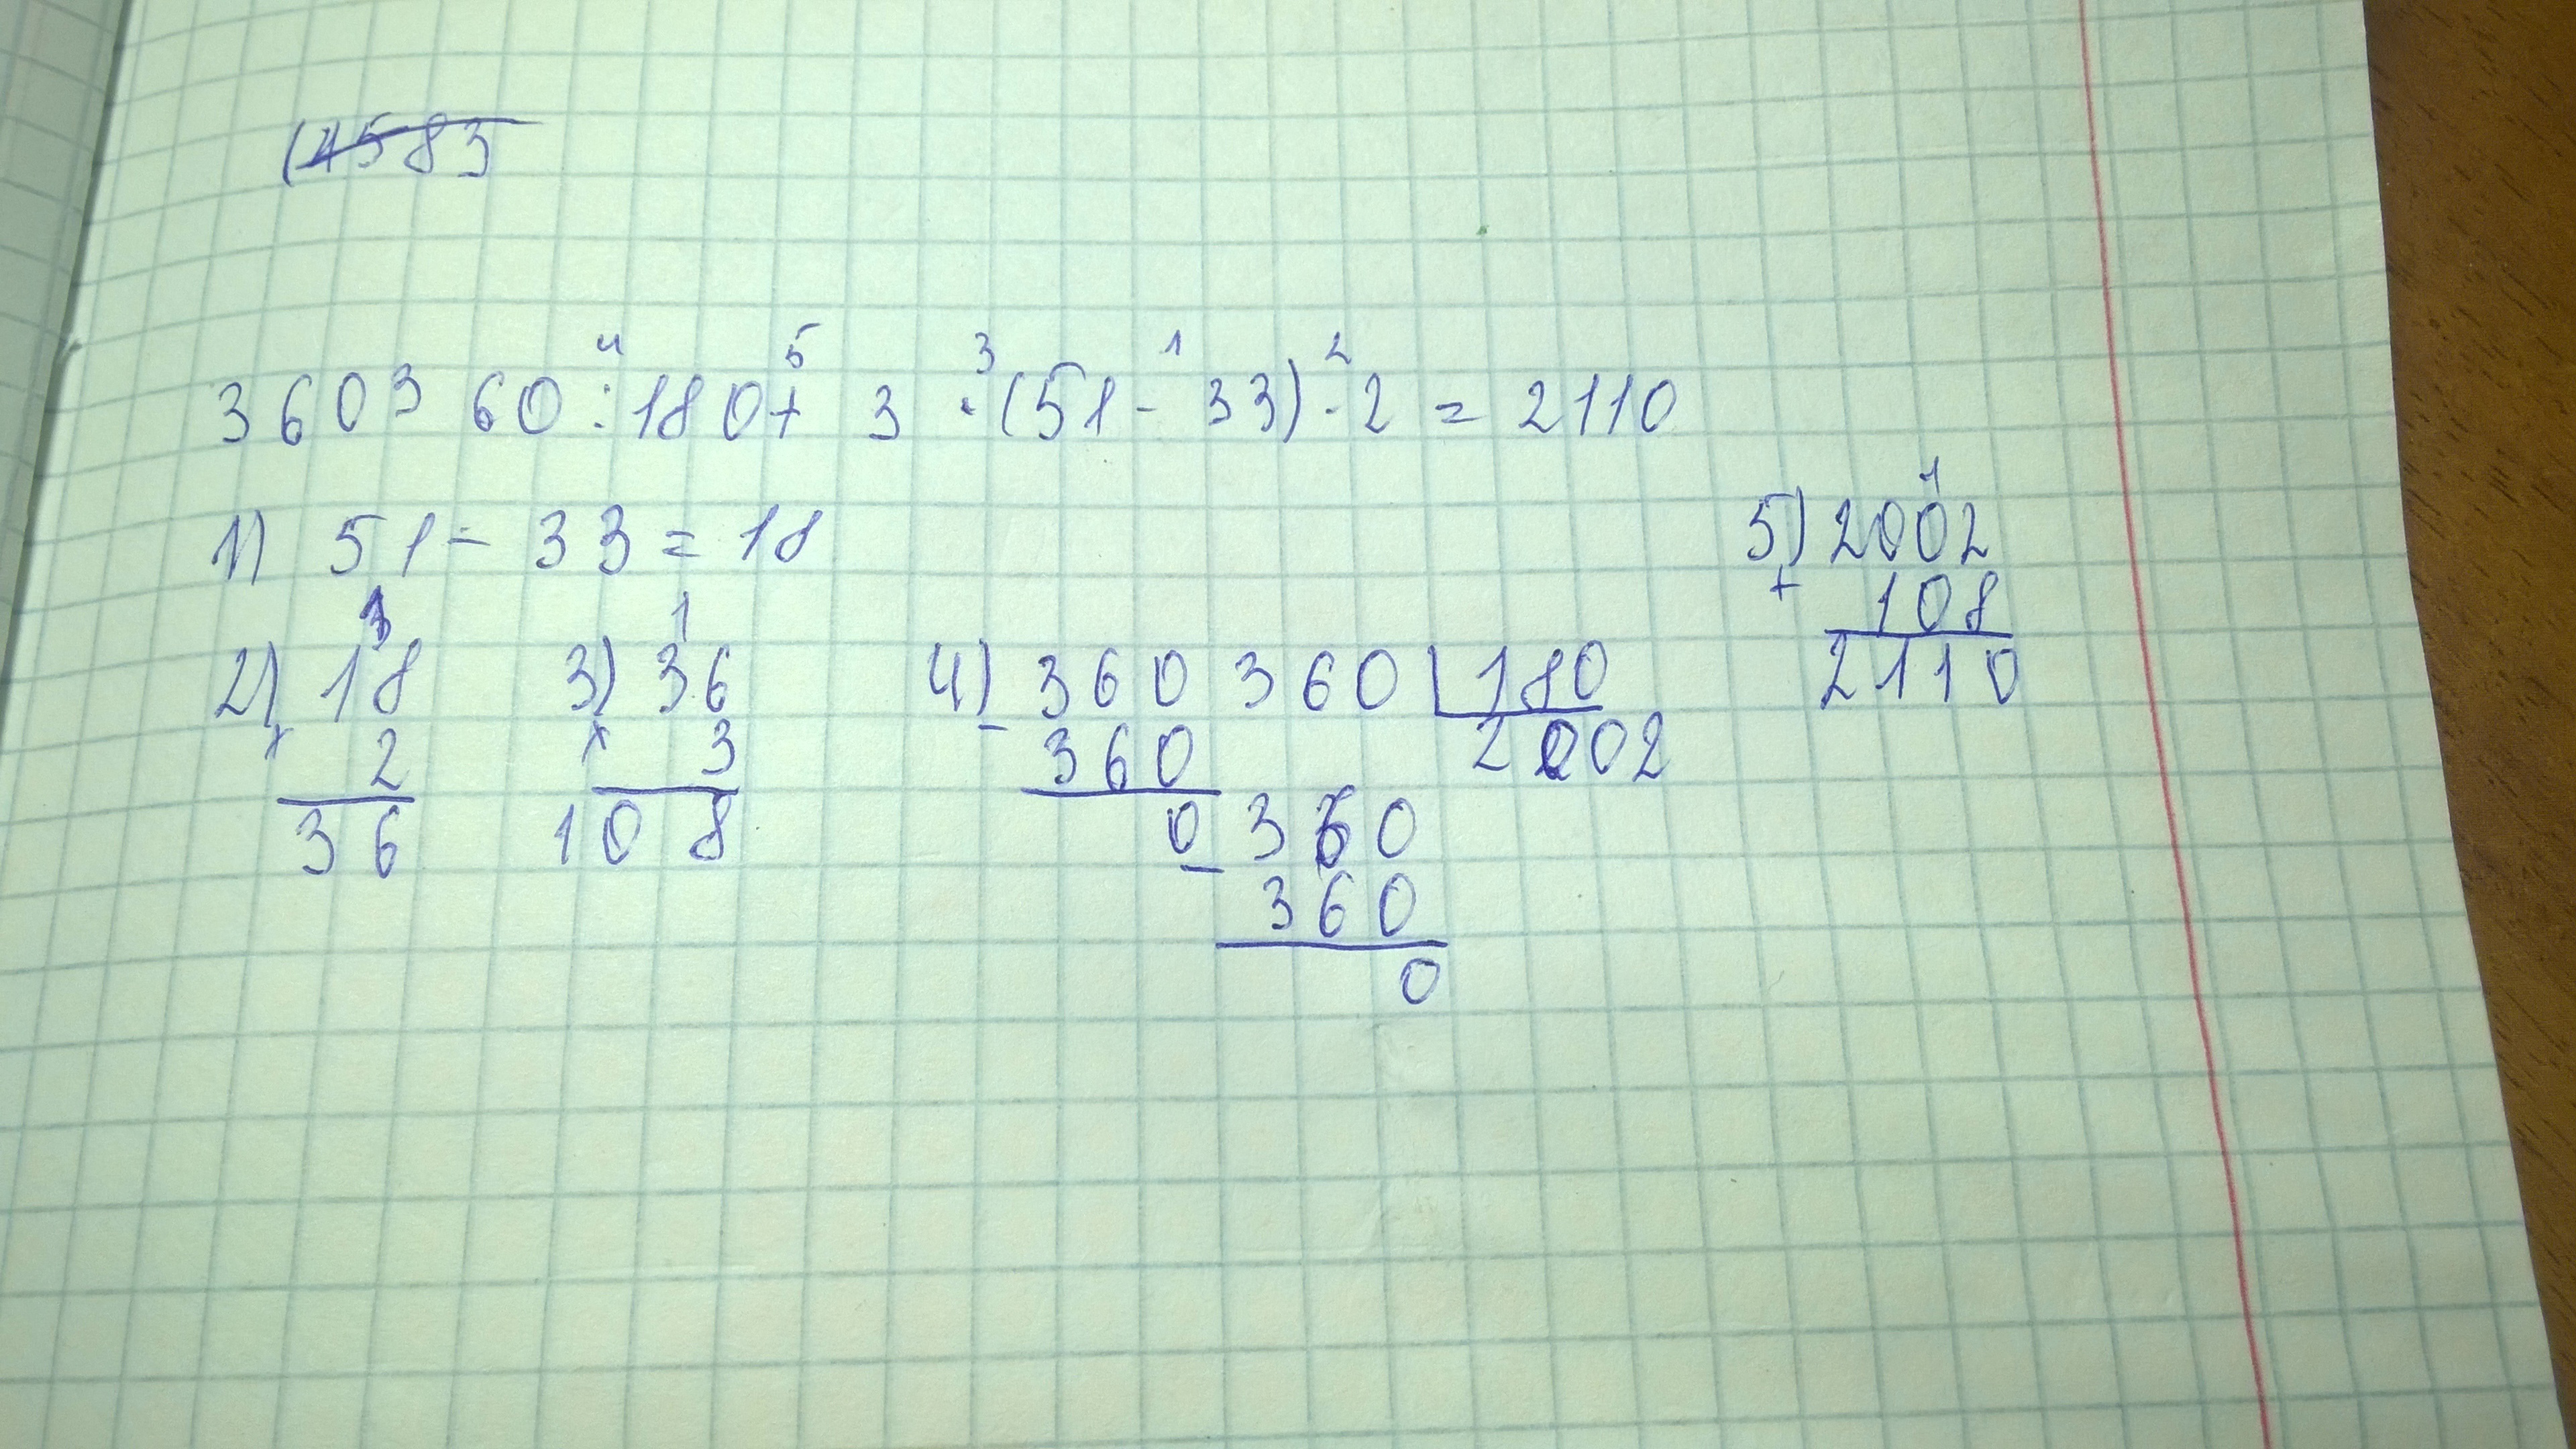 (4583
4 5 3 1 2
360360:180+3·(51-33)·2=2110
1) 51-33=18
1
2) 18
× 2
36
1
3) 36
× 3
108
4) 360360 180
- 360 2002
0360
- 360
0
1
5) 2002
+ 108
2110